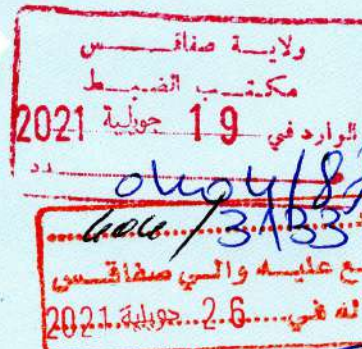 ولاية صفاقس
مكتب الضبط
الوارد في 19 جويلية 2021
دد
3133
ع عليه والي صفاقس
له في 26 جويلية 2021